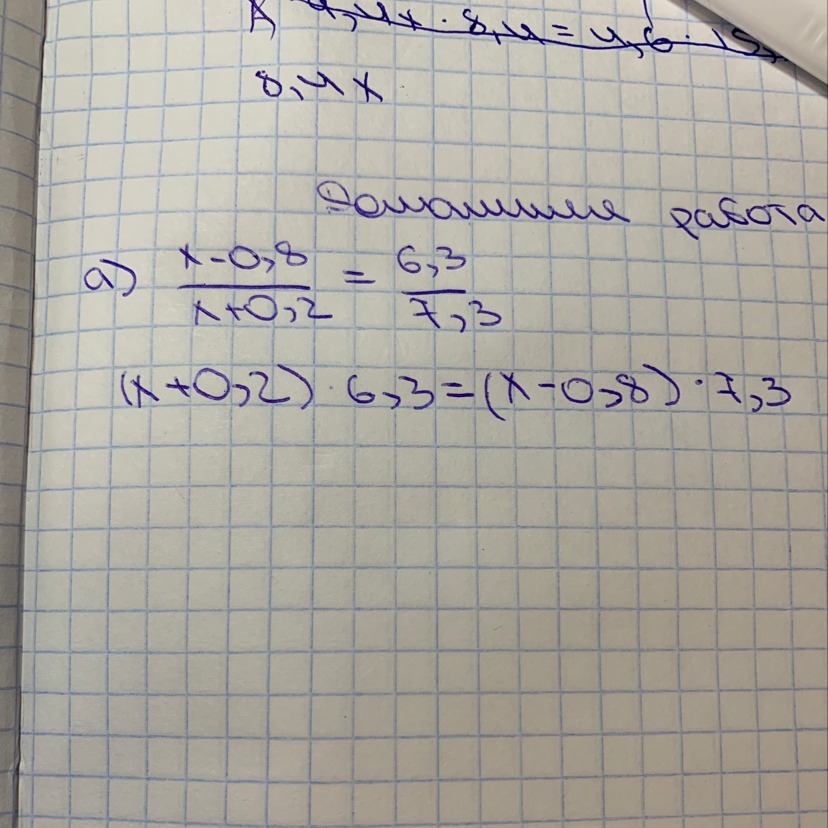 8,4x
Домашняя работа
а) x-0,8 / x+0,2 = 6,3 / 7,3
(x+0,2)·6,3=(x-0,8)·7,3